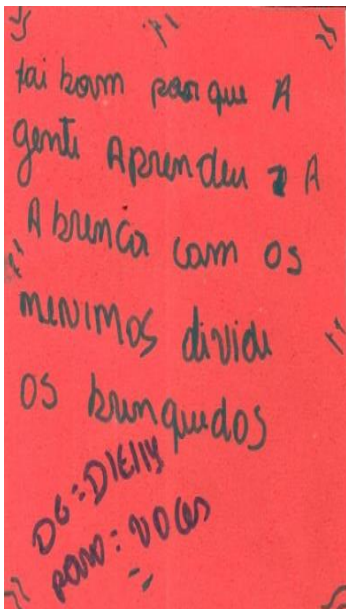 foi bom porque A
gente Aprendeu A
A brinca com os
menimos dividi
os brinquedos
DE: DIELLY
para: voces